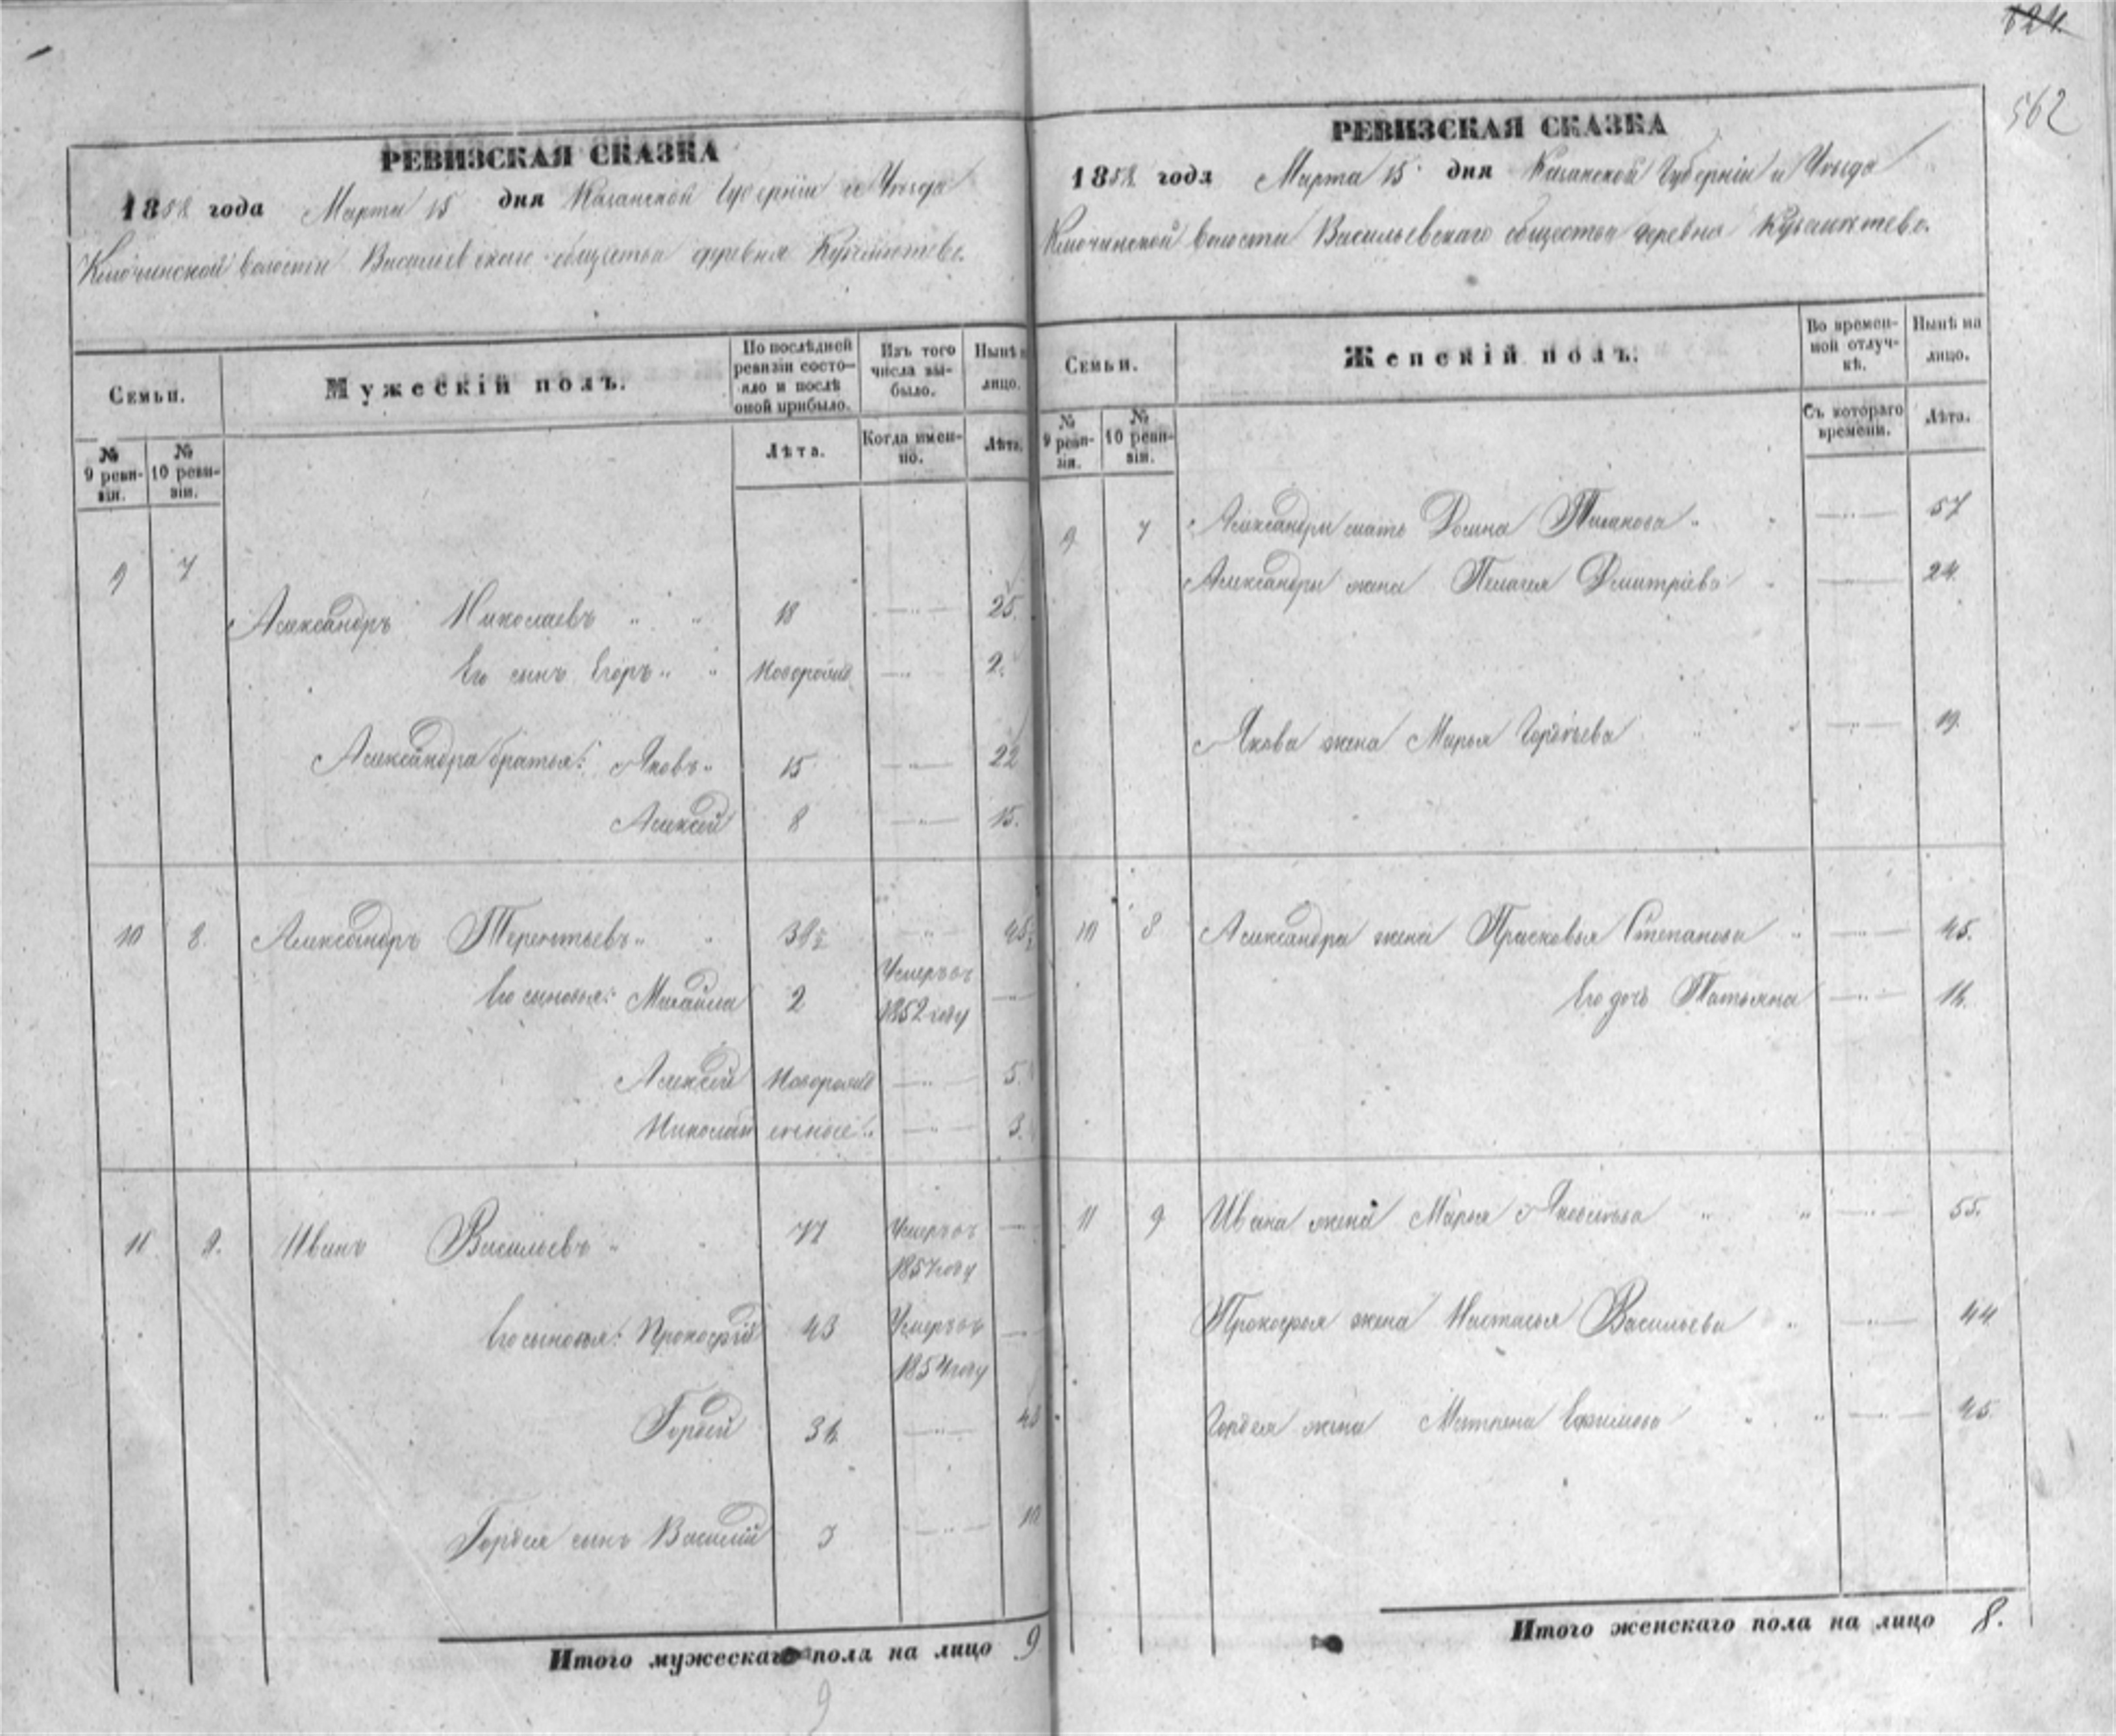 624.
562
РЕВИЗСКАЯ СКАЗКА
1858 года Марта 15 дня Казанской Губерніи и Уѣзда
Ключинской волости Васильевскаго общества деревня
Семьи.
Мужескій полъ.
По послѣдней ревизіи состояло и послѣ оной прибыло.
Изъ того числа выбыло.
Нынѣ на лицо.
№ 9 ревизіи.
№ 10 ревизіи.
Лѣта.
Когда именно.
Лѣта.
9 7
Александръ Николаевъ " " 18 — " — 25.
Его сынъ Егоръ " " Новорожд — " — 2.
Александра братья: Яковъ " 15 — " — 22
Алексѣй 8 — " — 15.
10 8. Александръ Терентьевъ " " 38½ — " — 45½
Его сыновья: Михайла 2 Умеръ въ 1852 году —
Алексѣй Новорожд — " — 5.
Николай — " — 3.
11 9. Иванъ Васильевъ " " 71 Умеръ въ 1857 году —
Его сыновья: Прокофій 43 Умеръ въ 1854 году —
Гордей 36 — " — 43
Гордея сынъ Василій 3 — " — 10
Итого мужескаго пола на лицо 9
9
РЕВИЗСКАЯ СКАЗКА
1858 года Марта 15 дня Казанской Губерніи и Уѣзда
Ключинской волости Васильевскаго общества деревня
Семьи.
Женскій полъ.
Во временной отлучкѣ.
Нынѣ на лицо.
№ 9 ревизіи.
№ 10 ревизіи.
Съ котораго времени.
Лѣта.
9 7 Александра мать " " — " — 57
Александры жена Пелагея Дмитріева " — " — 24.
Якова жена Марья Гордѣева " " — " — 19.
10 8 Александра жена Прасковья Степанова " — " — 45.
Его дочь Татьяна — " — 16.
11 9 Ивана жена Марья Яковлева " " — " — 55.
Прокофья жена Настасья Васильева " — " — 44
Гордея жена Матрена Ефимова " " — " — 45.
Итого женскаго пола на лицо 8.